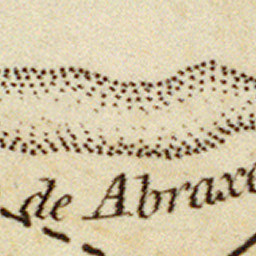 de Abraxo